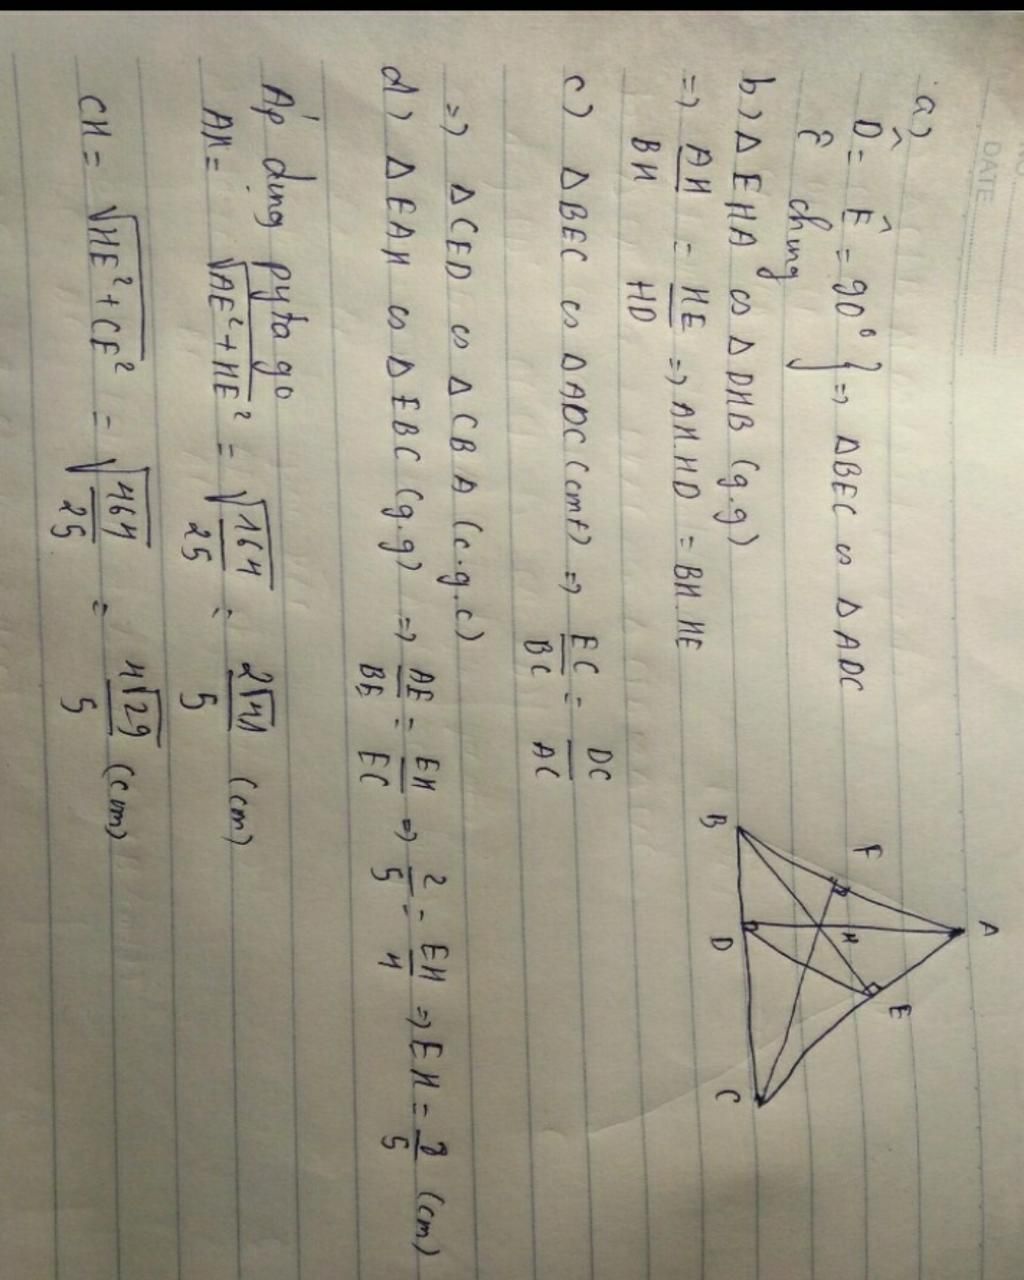 NO
DATE
a)
D̂ = Ê = 90°
Ĉ chung } => ΔBEC ∽ ΔADC
b) ΔEHA ∽ ΔDHB (g.g)
=> AH/BH = HE/HD => AH.HD = BH.HE
c) ΔBEC ∽ ΔADC (cmt) => EC/BC = DC/AC
=> ΔCED ∽ ΔCBA (c.g.c)
d) ΔEAH ∽ ΔEBC (g.g) => AE/BE = EH/EC => 2/5 = EH/4 => EH = 8/5 (cm)
Áp dụng pytago
AH = √AE² + HE² = √164/25 = 2√41/5 (cm)
CH = √HE² + CE² = √464/25 = 4√29/5 (cm)
A
F
E
H
B
D
C